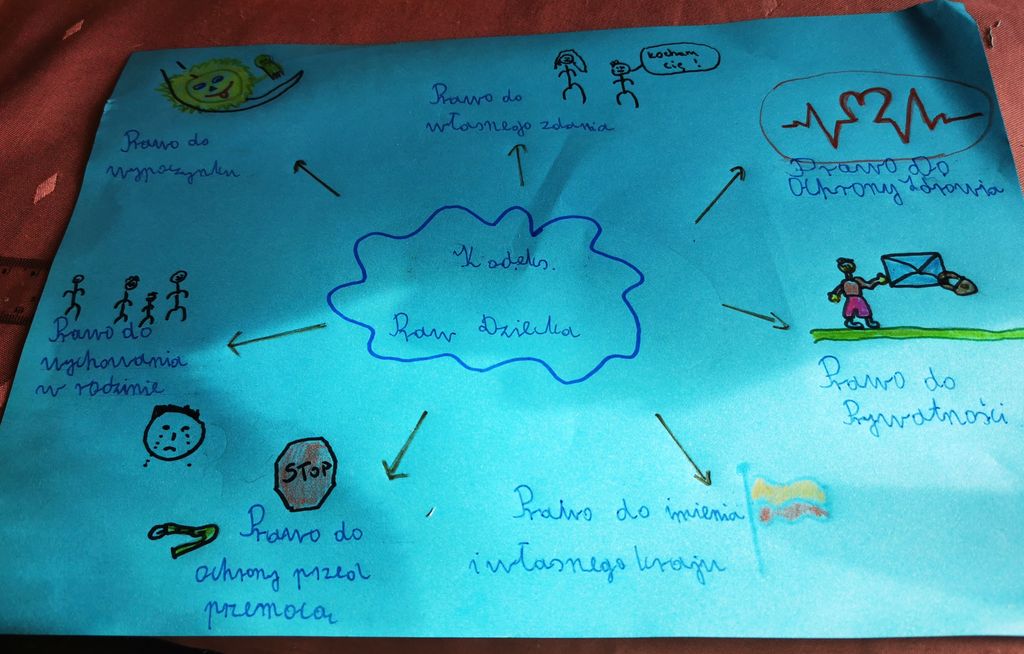 Prawo do
wypoczynku
Prawo do
własnego zdania
kocham
cię!
Prawo Do
Ochrony Zdrowia
Kodeks
Praw Dziecka
Prawo do
wychowania
w rodzinie
Prawo do
Prywatności
STOP
Prawo do
ochrony przed
przemocą
Prawo do imienia
i własnego kraju